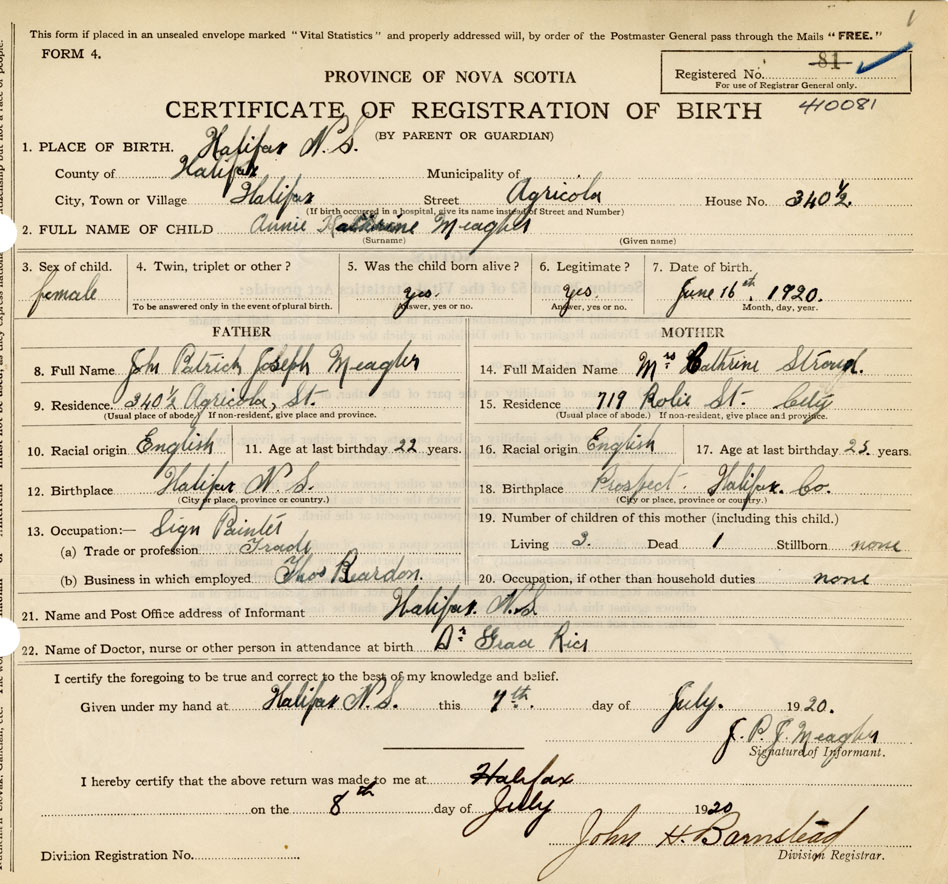 This form if placed in an unsealed envelope marked "Vital Statistics" and properly addressed will, by order of the Postmaster General pass through the Mails "FREE."
FORM 4.
Registered No. 81
For use of Registrar General only.
PROVINCE OF NOVA SCOTIA
CERTIFICATE OF REGISTRATION OF BIRTH
410081
(BY PARENT OR GUARDIAN)
1. PLACE OF BIRTH. Halifax N.S.
County of Halifax Municipality of
City, Town or Village Halifax Street Agricola House No. 340½.
(If birth occurred in a hospital, give its name instead of Street and Number)
2. FULL NAME OF CHILD Annie Katherine Meagher
(Surname) (Given name)
3. Sex of child. 4. Twin, triplet or other? 5. Was the child born alive? 6. Legitimate? 7. Date of birth.
female yes. yes. June 16th, 1920.
To be answered only in the event of plural birth. Answer, yes or no. Answer, yes or no. Month, day, year.
FATHER MOTHER
8. Full Name John Patrick Joseph Meagher 14. Full Maiden Name Mrs Cathrine Stroud.
9. Residence. 340½ Agricola, St. 15. Residence 719 Robie St- City
(Usual place of abode.) If non-resident, give place and province. (Usual place of abode.) If non-resident, give place and province.
10. Racial origin English 11. Age at last birthday 22 years. 16. Racial origin English 17. Age at last birthday 25. years.
12. Birthplace Halifax N.S. 18. Birthplace Prospect. Halifax. Co.
(City or place, province or country.) (City or place, province or country.)
13. Occupation:— Sign Painter 19. Number of children of this mother (including this child.)
(a) Trade or profession Trade Living 3. Dead 1 Stillborn none
(b) Business in which employed. Thos Reardon. 20. Occupation, if other than household duties none
21. Name and Post Office address of Informant Halifax. N.S.
22. Name of Doctor, nurse or other person in attendance at birth Dr Grace Rice
I certify the foregoing to be true and correct to the best of my knowledge and belief.
Given under my hand at Halifax N.S. this 7th. day of July. 1920.
J. P. J. Meagher
Signature of Informant.
I hereby certify that the above return was made to me at Halifax
on the 8th day of July 1920
John H. Barnstead
Division Registration No. Division Registrar.